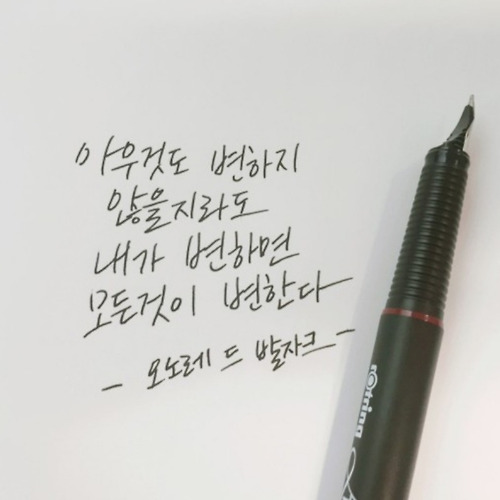 아무것도 변하지
않을지라도
내가 변하면
모든것이 변한다
- 오노레 드 발자크 -
rOtring